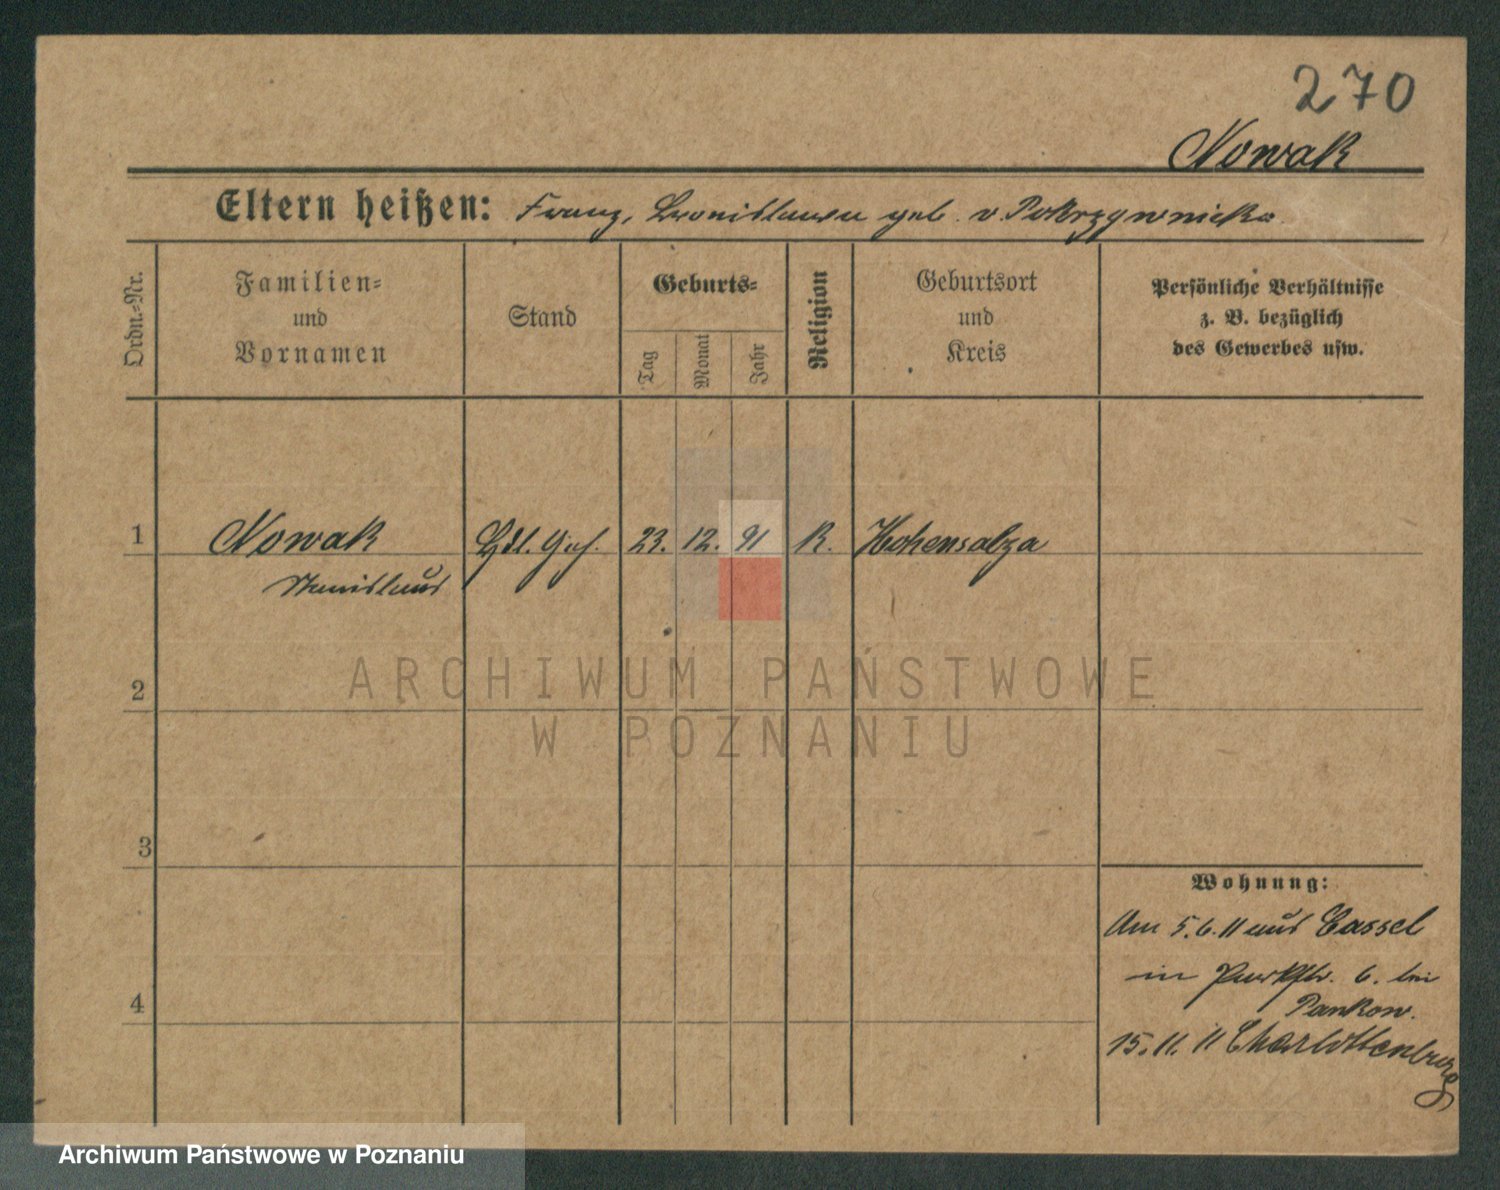 270
Nowak
Eltern heißen: Franz, Bronislawa geb. v. Pokrzywnicka
Ordn.-Nr.
Familien-
und
Vornamen
Stand
Geburts-
Tag
Monat
Jahr
Religion
Geburtsort
und
Kreis
Persönliche Verhältnisse
z. B. bezüglich
des Gewerbes usw.
1 Nowak Hdl. Geh. 23. 12. 91 K. Hohensalza
Stanislaus
2
3
4
Wohnung:
Am 5.6.11 aus Cassel
in Parkstr. 6. bei
Pankow.
15.11.11 Charlottenburg
ARCHIWUM PAŃSTWOWE
W POZNANIU
Archiwum Państwowe w Poznaniu